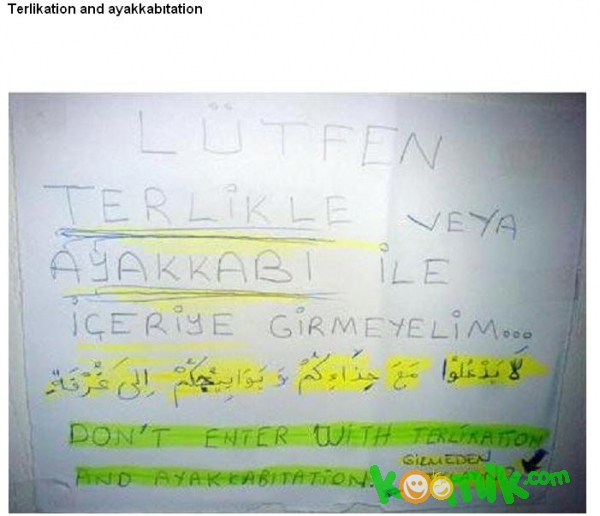 Terlikation and ayakkabıtation
LÜTFEN
TERLİKLE VEYA
AYAKKABI İLE
İÇERİYE GİRMEYELİM...
لَا يَدْعُلُوْا مَعَ حِذَاءِكُمْ وَ بَوَابِيْجِكُمْ اِلىَ غُرْفَةٍ
DON'T ENTER WITH TERLIKATION
AND AYAKKABITATION.
GİRMEDEN
KOOMİK.com